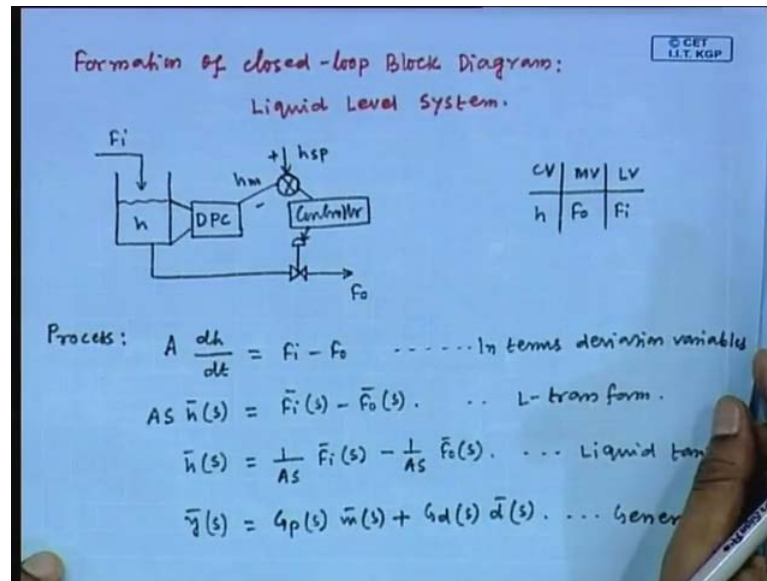 © CET
I.I.T. KGP
Formation of closed-loop Block Diagram:
Liquid Level System.
Fi
+ hsp
hm
-
h
DPC
Controller
Fo
CV | MV | LV
h | Fo | Fi
Process: A dh/dt = Fi - Fo ...... In terms deviation variables
AS h̄(s) = F̄i(s) - F̄o(s). .. L-transform.
h̄(s) = 1/AS F̄i(s) - 1/AS F̄o(s). ... Liquid tan
ȳ(s) = Gp(s) m̄(s) + Gd(s) d̄(s). ... Gener